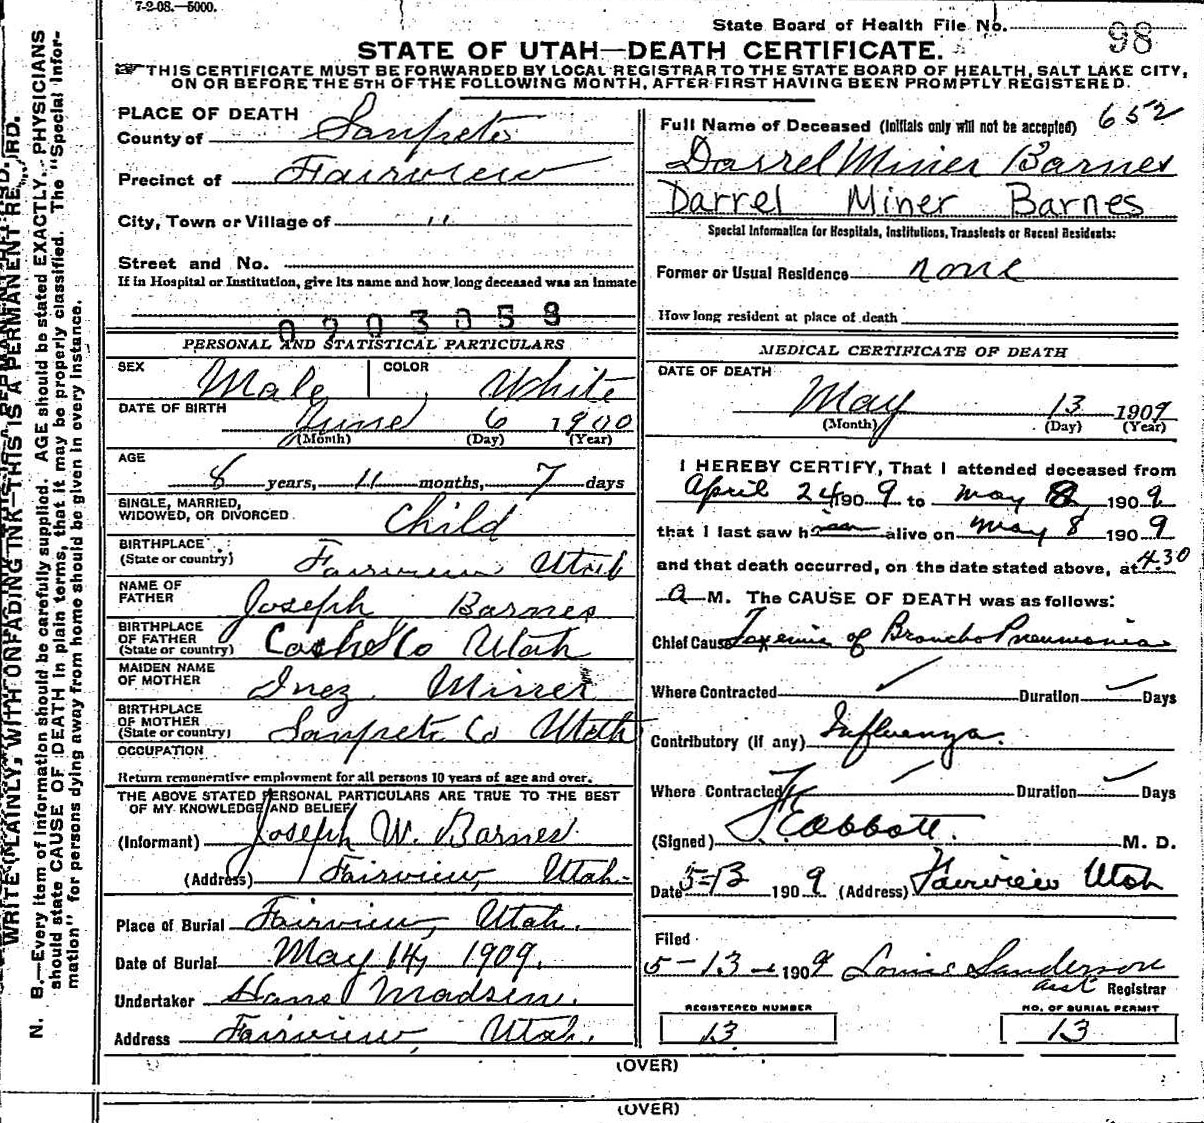 7-2-08.—5000.
State Board of Health File No. 98
STATE OF UTAH—DEATH CERTIFICATE.
THIS CERTIFICATE MUST BE FORWARDED BY LOCAL REGISTRAR TO THE STATE BOARD OF HEALTH, SALT LAKE CITY,
ON OR BEFORE THE 5TH OF THE FOLLOWING MONTH, AFTER FIRST HAVING BEEN PROMPTLY REGISTERED.
WRITE PLAINLY, WITH UNFADING INK—THIS IS A PERMANENT RECORD.
N. B.—Every item of information should be carefully supplied. AGE should be stated EXACTLY. PHYSICIANS
should state CAUSE OF DEATH in plain terms, that it may be properly classified. The "Special Infor-
mation" for persons dying away from home should be given in every instance.
PLACE OF DEATH
County of Sanpete
Precinct of Fairview
City, Town or Village of "
Street and No.
If in Hospital or Institution, give its name and how long deceased was an inmate
0903058
PERSONAL AND STATISTICAL PARTICULARS
SEX Male COLOR White
DATE OF BIRTH June 6 1900
(Month) (Day) (Year)
AGE
8 years, 11 months, 7 days
SINGLE, MARRIED,
WIDOWED, OR DIVORCED Child
BIRTHPLACE
(State or country) Fairview Utah
NAME OF
FATHER Joseph Barnes
BIRTHPLACE
OF FATHER
(State or country) Cache Co Utah
MAIDEN NAME
OF MOTHER Inez Miner
BIRTHPLACE
OF MOTHER
(State or country) Sanpete Co Utah
OCCUPATION
Return remunerative employment for all persons 10 years of age and over.
THE ABOVE STATED PERSONAL PARTICULARS ARE TRUE TO THE BEST
OF MY KNOWLEDGE AND BELIEF
(Informant) Joseph W. Barnes
(Address) Fairview, Utah.
Place of Burial Fairview, Utah.
Date of Burial May 14, 1909.
Undertaker Hans Madsen.
Address Fairview, Utah.
Full Name of Deceased (Initials only will not be accepted) 652
Darrel Miner Barnes
Darrel Miner Barnes
Special Information for Hospitals, Institutions, Transients or Recent Residents:
Former or Usual Residence none
How long resident at place of death
MEDICAL CERTIFICATE OF DEATH
DATE OF DEATH
May 13 1909
(Month) (Day) (Year)
I HEREBY CERTIFY, That I attended deceased from
April 24 1909 to May 8, 1909
that I last saw him alive on May 8 1909
and that death occurred, on the date stated above, at 4.30
a M. The CAUSE OF DEATH was as follows:
Chief Cause Toxemia of Broncho Pneumonia
Where Contracted ✓ Duration ✓ Days
Contributory (if any) Influenza.
Where Contracted ✓ Duration ✓ Days
(Signed) Abbott. M. D.
Date 5-13 1909 (Address) Fairview Utah
Filed
5-13- 1909 Louise Sanderson
Asst Registrar
REGISTERED NUMBER NO. OF BURIAL PERMIT
13 13
(OVER)
(OVER)